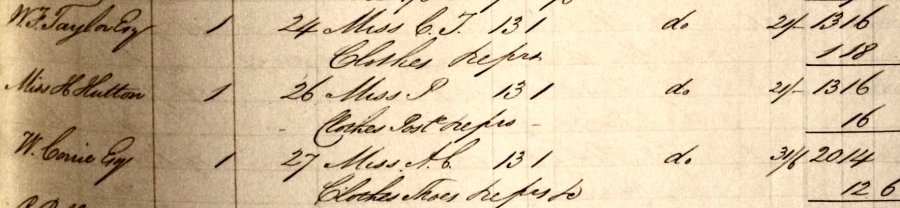 W. F. Taylor Esq 1 24 Miss C. T. 13 1 do 21/- 13 16
Clothes Reprs 1 18
Miss H Hutton 1 26 Miss P 13 1 do 21/- 13 16
Clothes Post. Reprs - 16
W. Corrie Esq 1 27 Miss A. C. 13 1 do 31/6 20 14
Clothes Shoes Reprs &c 12 6